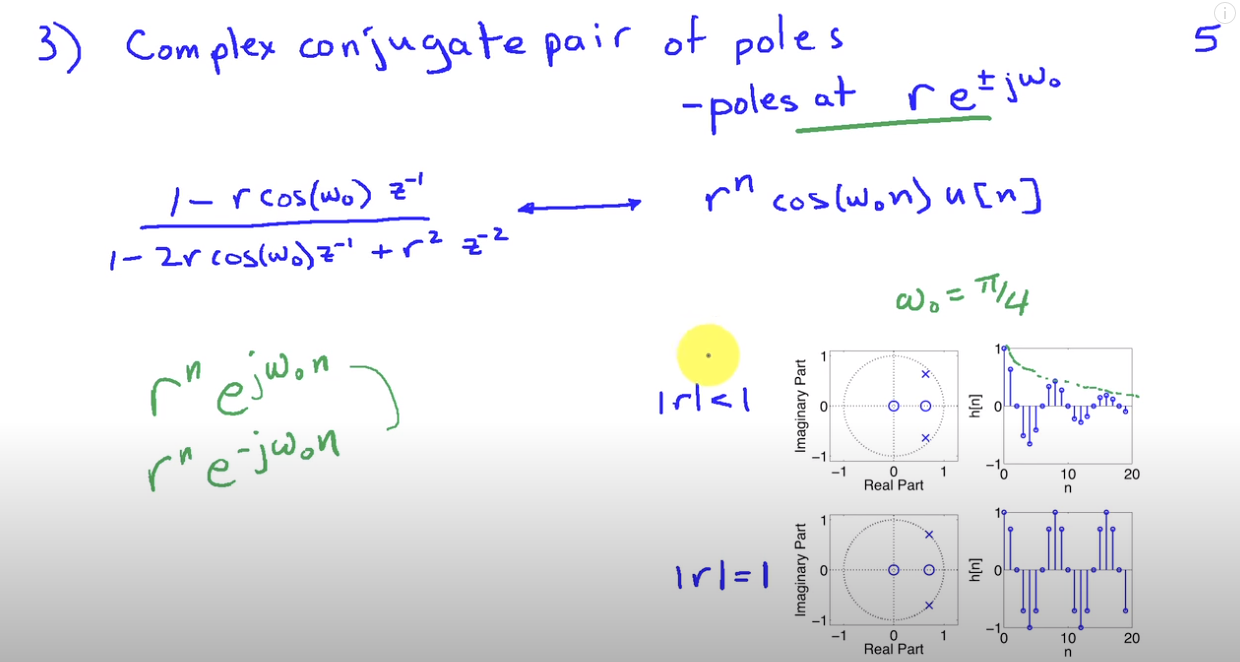 3) Complex conjugate pair of poles
5
-poles at r e^{±jω₀}
1 - r cos(ω₀) z⁻¹
1 - 2r cos(ω₀) z⁻¹ + r² z⁻²
rⁿ cos(ω₀n) u[n]
ω₀ = π/4
rⁿ e^{jω₀n}
rⁿ e^{-jω₀n}
|r| < 1
Imaginary Part
1
0
−1
−1 0 1
Real Part
h[n]
1
0
−1
0 10 20
n
|r| = 1
Imaginary Part
1
0
−1
−1 0 1
Real Part
h[n]
1
0
−1
0 10 20
n